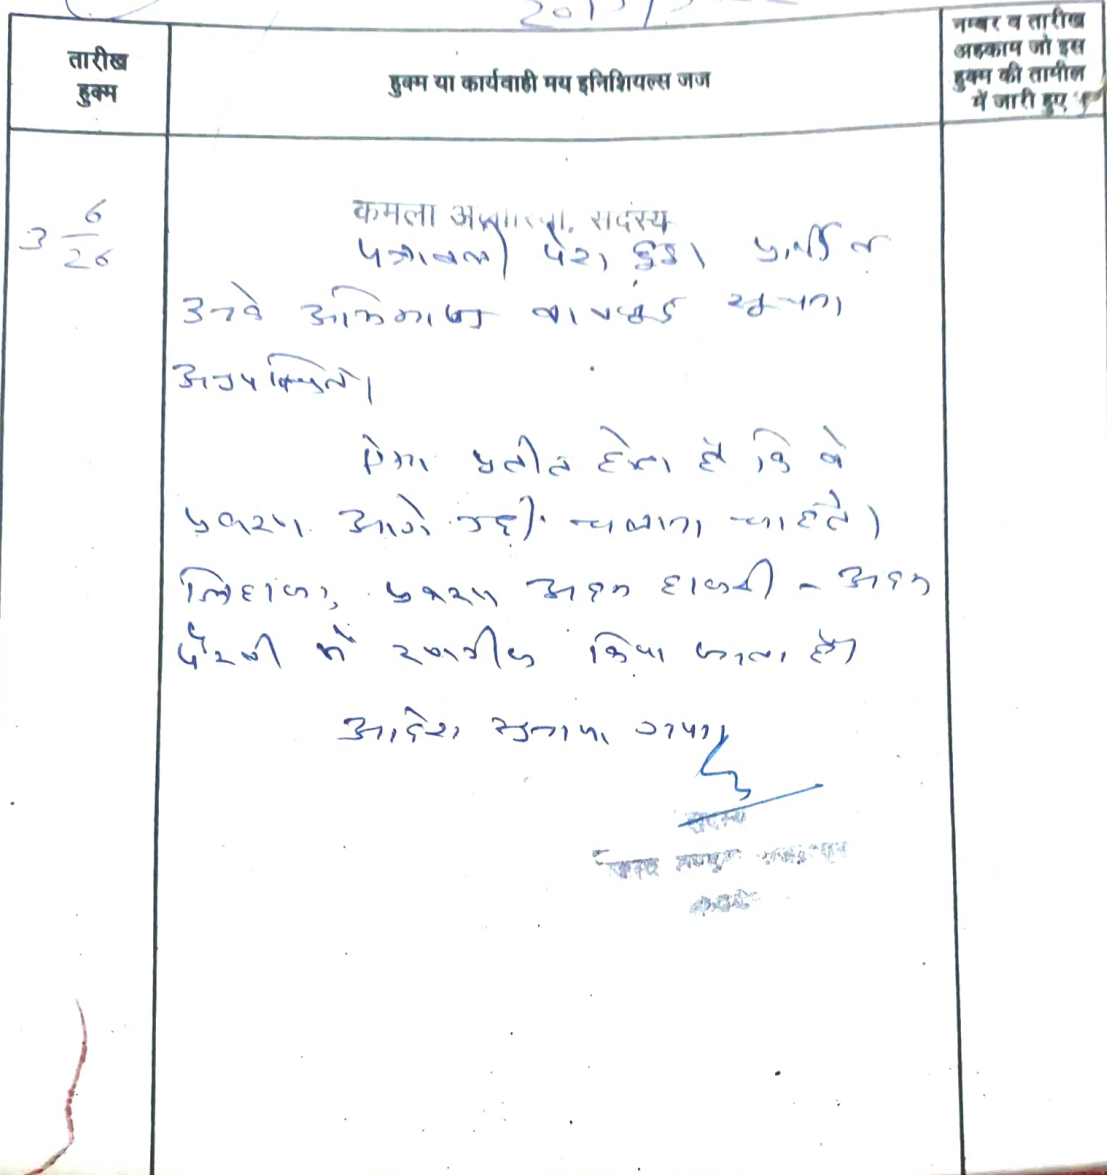 तारीख
हुक्म
हुक्म या कार्यवाही मय इनिशियल्स जज
नम्बर व तारीख
अहकाम जो इस
हुक्म की तामील
में जारी हुए
3 6/26
कमला सदस्य
पत्रावली पेश हुई। प्रार्थी व
उनके अभिभाषक बावजूद सूचना
अनुपस्थित।
ऐसा प्रतीत होता है कि वे
प्रकरण आगे नहीं चलाना चाहते।
लिहाजा, प्रकरण अदम हाजरी - अदम
पैरवी में खारीज किया जाता है।
आदेश सुनाया गया।
सदस्य